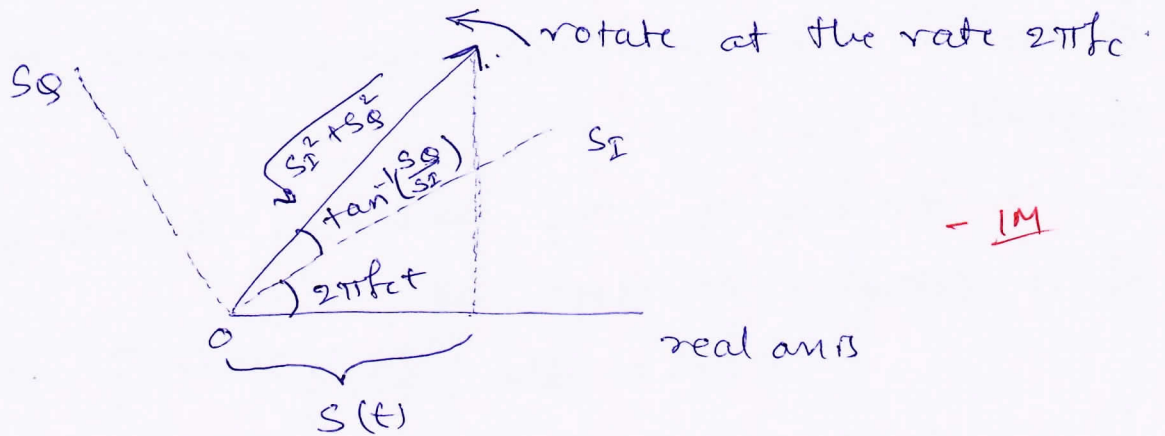 rotate at the rate 2πfc.
SQ
√SI²+SQ²
tan⁻¹(SQ/SI)
SI
- 1M
2πfct
O
real axis
S(t)